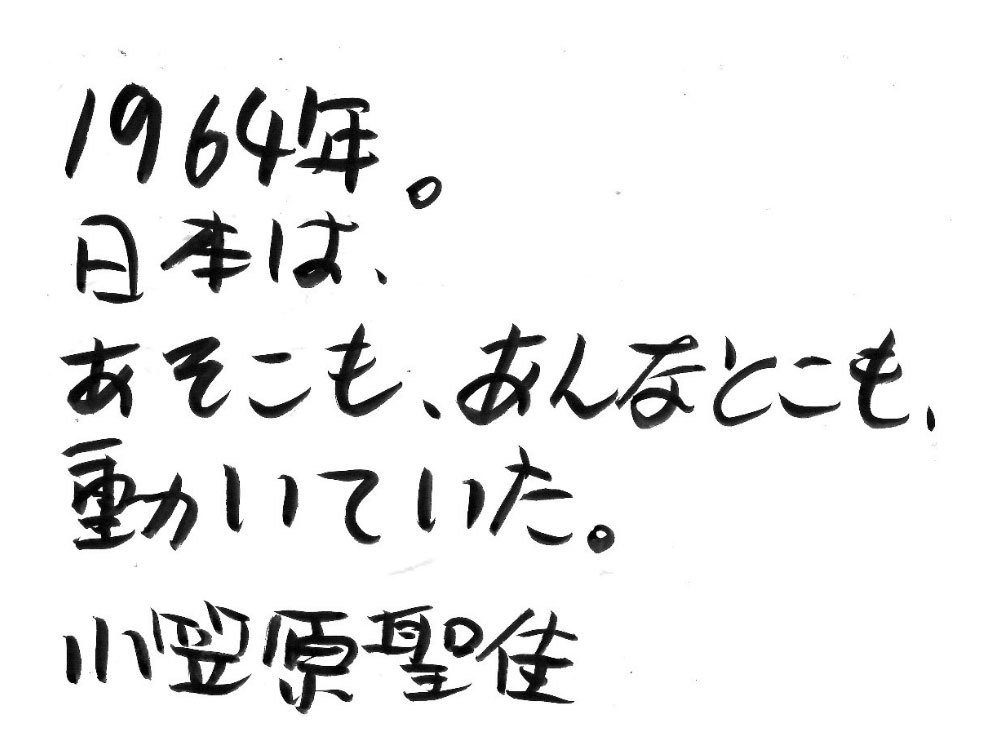 1964年。
日本は、
あそこも、あんなとこも、
動いていた。
小笠原聖佳